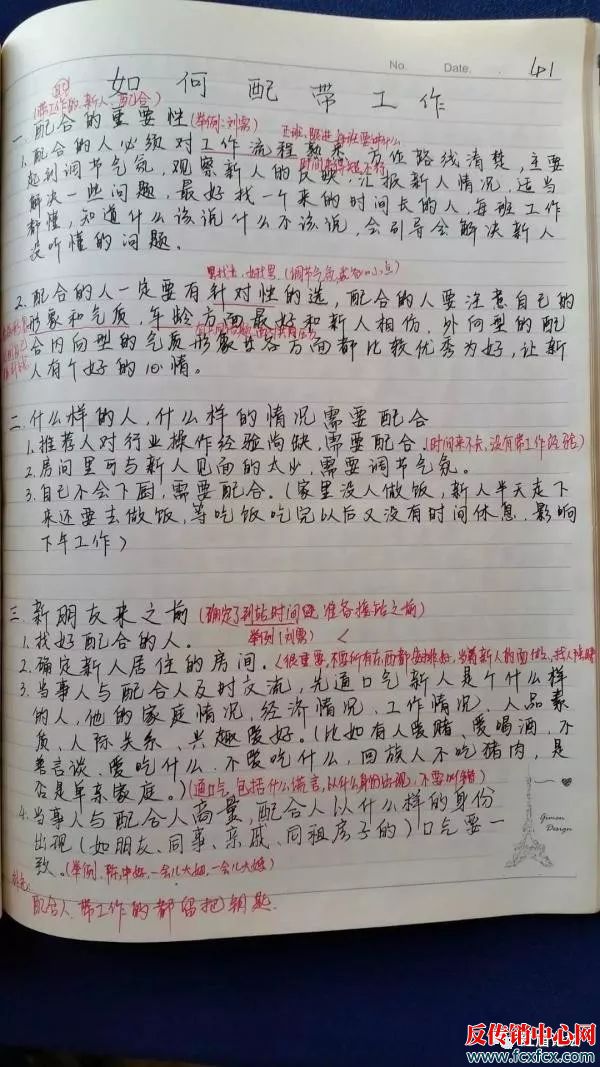 No. Date. 41
如何配带工作
(带工作的,新人,配合)
一、配合的重要性(举例:刘霞)
1.配合的人必须对工作流程熟悉,方位路线清楚,主要
起到调节气氛,观察新人的反映,汇报新人情况,适当
解决一些问题,最好找一个来的时间长的人,每班工作
都懂,知道什么该说什么不该说,会引导会解决新人
没听懂的问题。
2.配合的人一定要有针对性的选,配合的人要注意自己的
形象和气质,年龄方面最好和新人相仿,外向型的配
合内向型的气质形象各方面都比较优秀为好,让新
人有个好的心情。
二、什么样的人,什么样的情况需要配合
1.推荐人对行业操作经验尚缺,需要配合。(时间来不长,没有带工作经验)
2.房间里可与新人见面的太少,需要调节气氛。
3.自己不会下厨,需要配合。(家里没人做饭,新人半天走下
来还要去做饭,等吃饭吃完以后又没有时间休息,影响
下午工作)
三、新朋友来之前(确定了到站时间,准备接站之前)
1.找好配合的人。 举例(刘霞)
2.确定新人居住的房间。
3.当事人与配合人及时交流,先通口气新人是个什么样
的人,他的家庭情况、经济情况、工作情况、人品素
质、人际关系、兴趣爱好。(比如有人爱赌、爱喝酒,不
善言谈、爱吃什么,不爱吃什么,回族人不吃猪肉,是
否是单亲家庭。)(通口气,包括什么谎言,以什么身份出现,不要叫错)
4.当事人与配合人商量,配合人以什么样的身份
出现(如朋友、同事、亲戚、同租房子的)口气要一
致。
配合人、带工作的都留把钥匙
Design
反传销中心网
www.fcxfcx.com